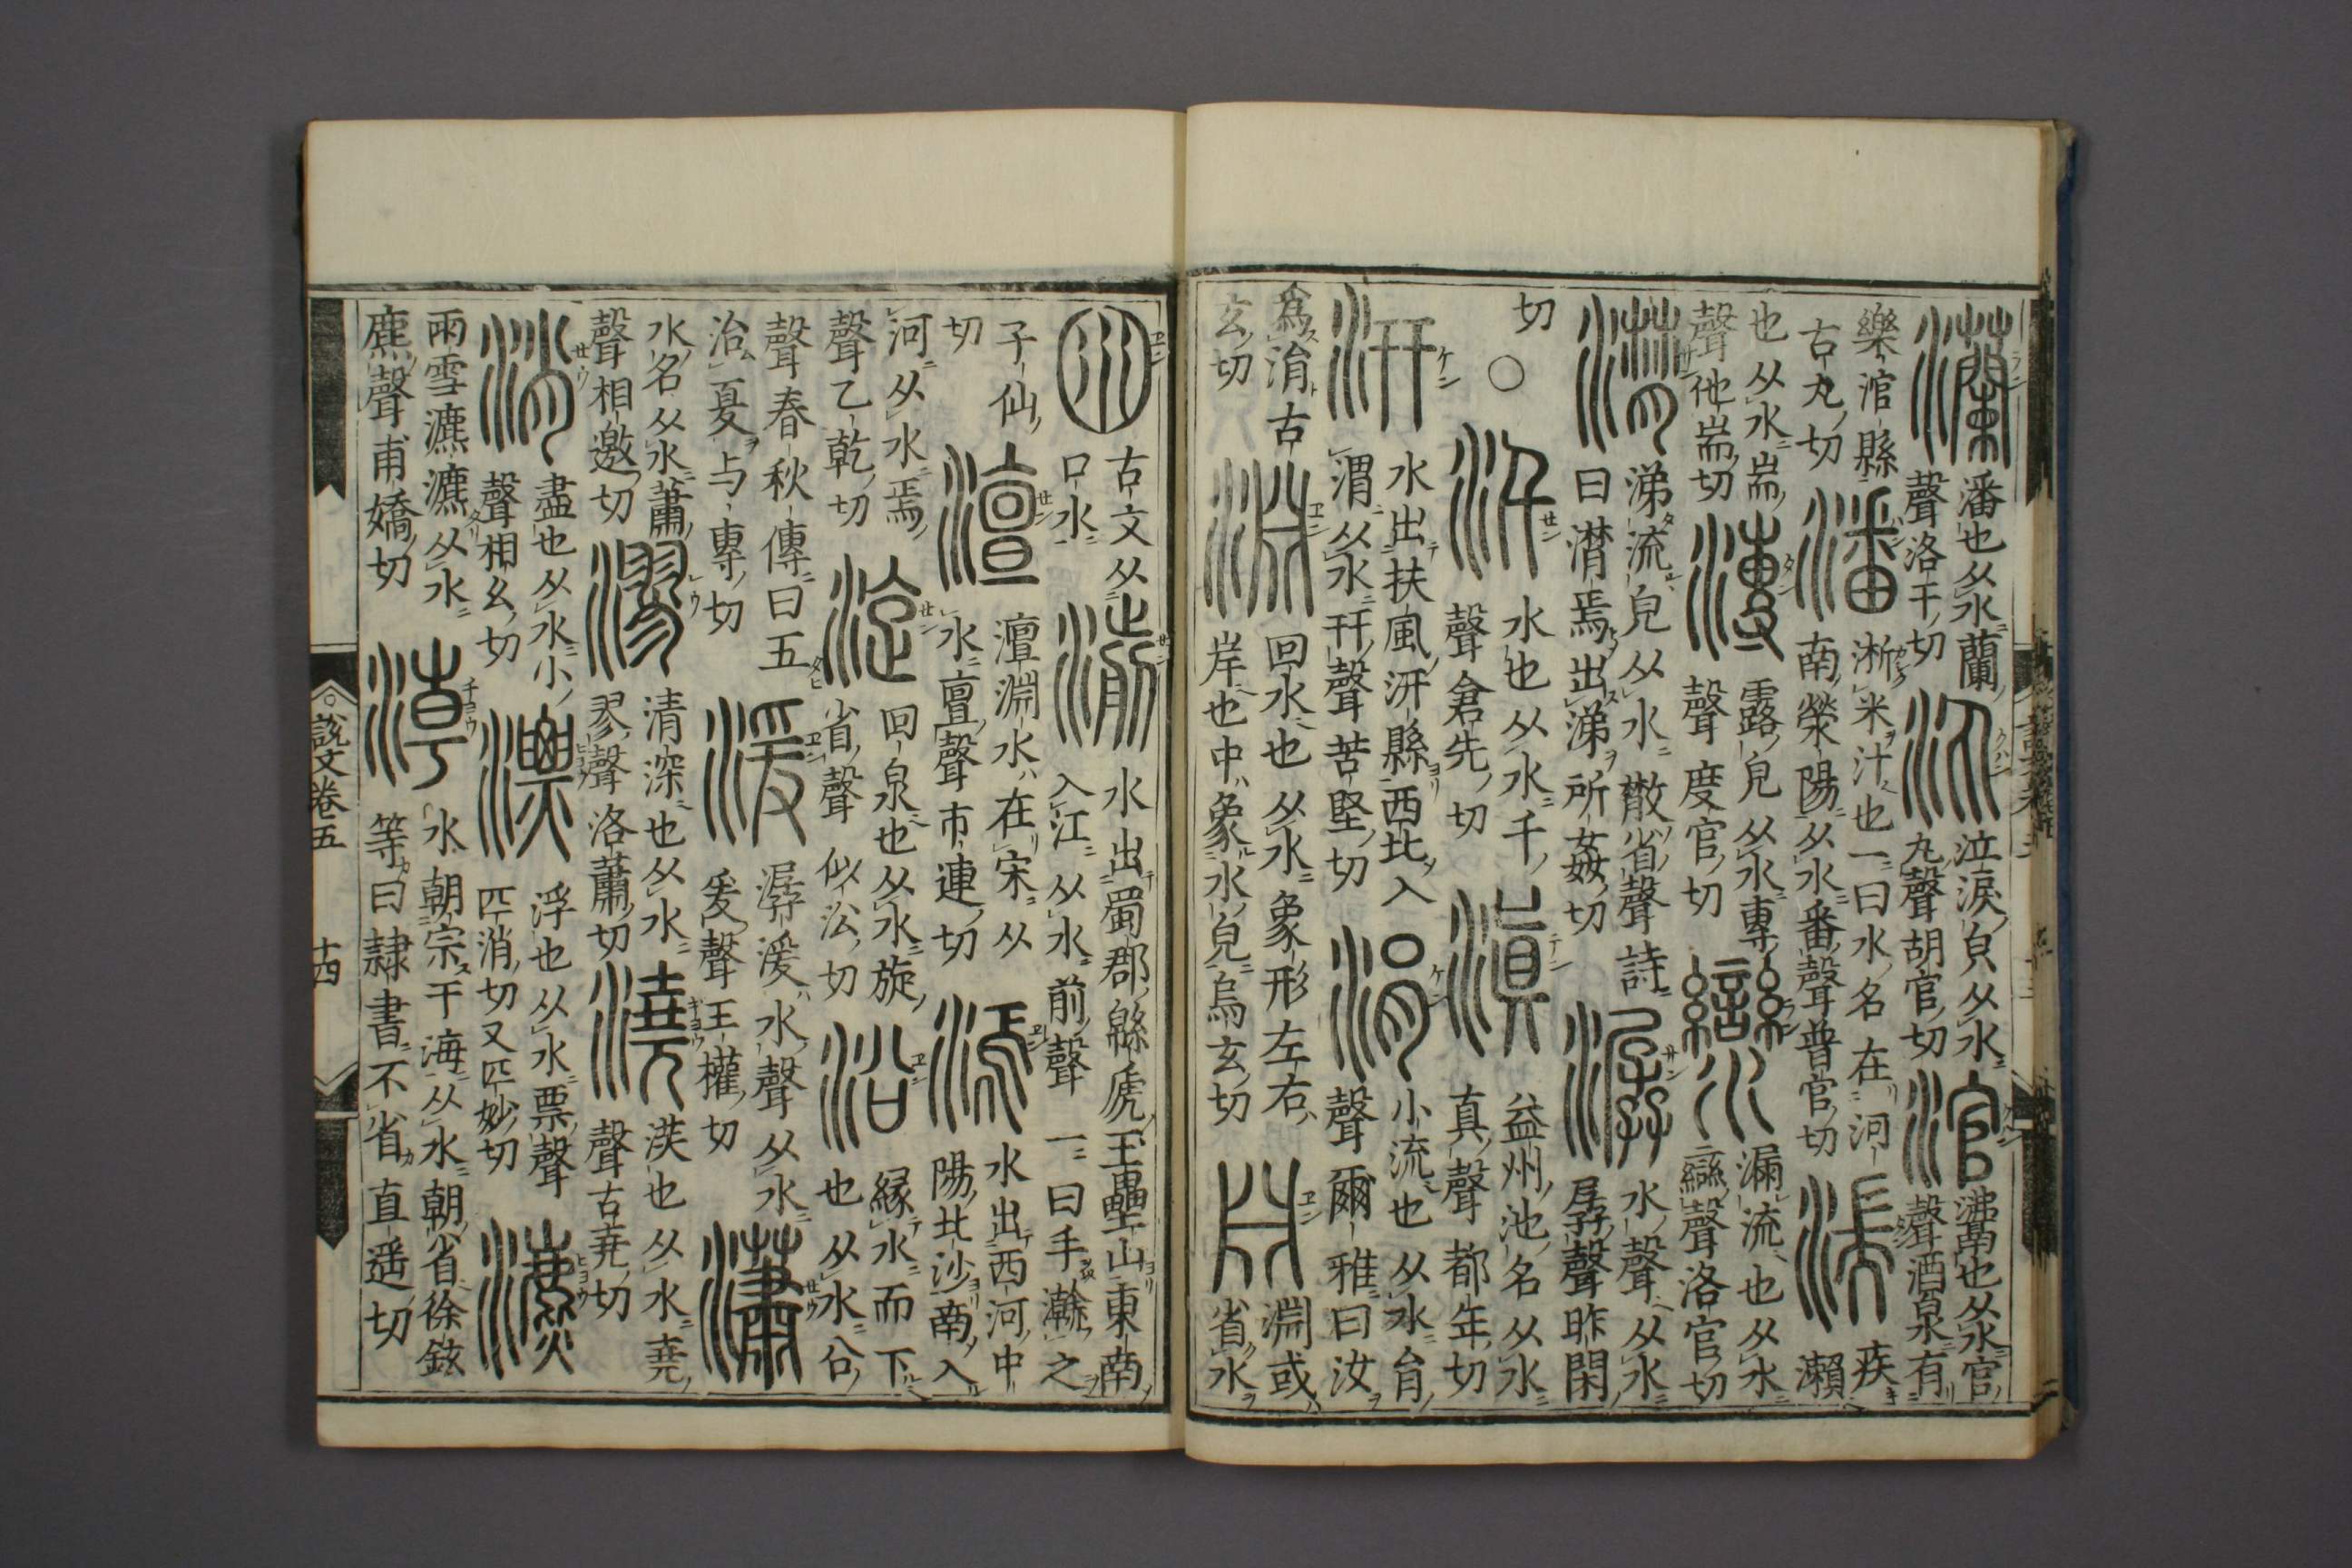 灡潘也从水蘭聲洛干切汍泣淚皃从水丸聲胡官切涫沸也从水官聲酒泉有
樂涫縣古丸切潘淅米汁也一曰水名在河南滎陽从水番聲普官切湍疾瀨
也从水耑聲他耑切漙露皃从水專聲度官切灓漏流也从水䜌聲洛官切
潸涕流皃从水散省聲詩曰潸焉出涕所姦切潺水聲从水孱聲昨閑
切○汘水也从水千聲倉先切滇益州池名从水真聲都年切
汧水出扶風汧縣西北入渭从水幵聲苦堅切涓小流也从水肙聲爾雅曰汝
為涓古玄切淵回水也从水象形左右岸也中象水皃烏玄切𣶒淵或省水
囦古文从口水湔水出蜀郡緜虒玉壘山東南入江从水前聲一曰手瀚之
子仙切澶澶淵水在宋从水亶聲市連切漹水出西河中陽北沙南入
河从水焉聲乙乾切淀回泉也从水旋省聲似沿切沿緣水而下也从水㕣
聲春秋傳曰五治夏与專切湲潺湲水聲从水爰聲王權切瀟
水名从水蕭聲相邀切漻清深也从水翏聲洛蕭切澆沃也从水堯聲古堯切
消盡也从水小聲相幺切漂浮也从水票聲匹消切又匹妙切瀌
雨雪瀌瀌从水麃聲甫嬌切淖水朝宗于海从水朝省徐鉉等曰隸書不省直遙切
說文卷五 十四